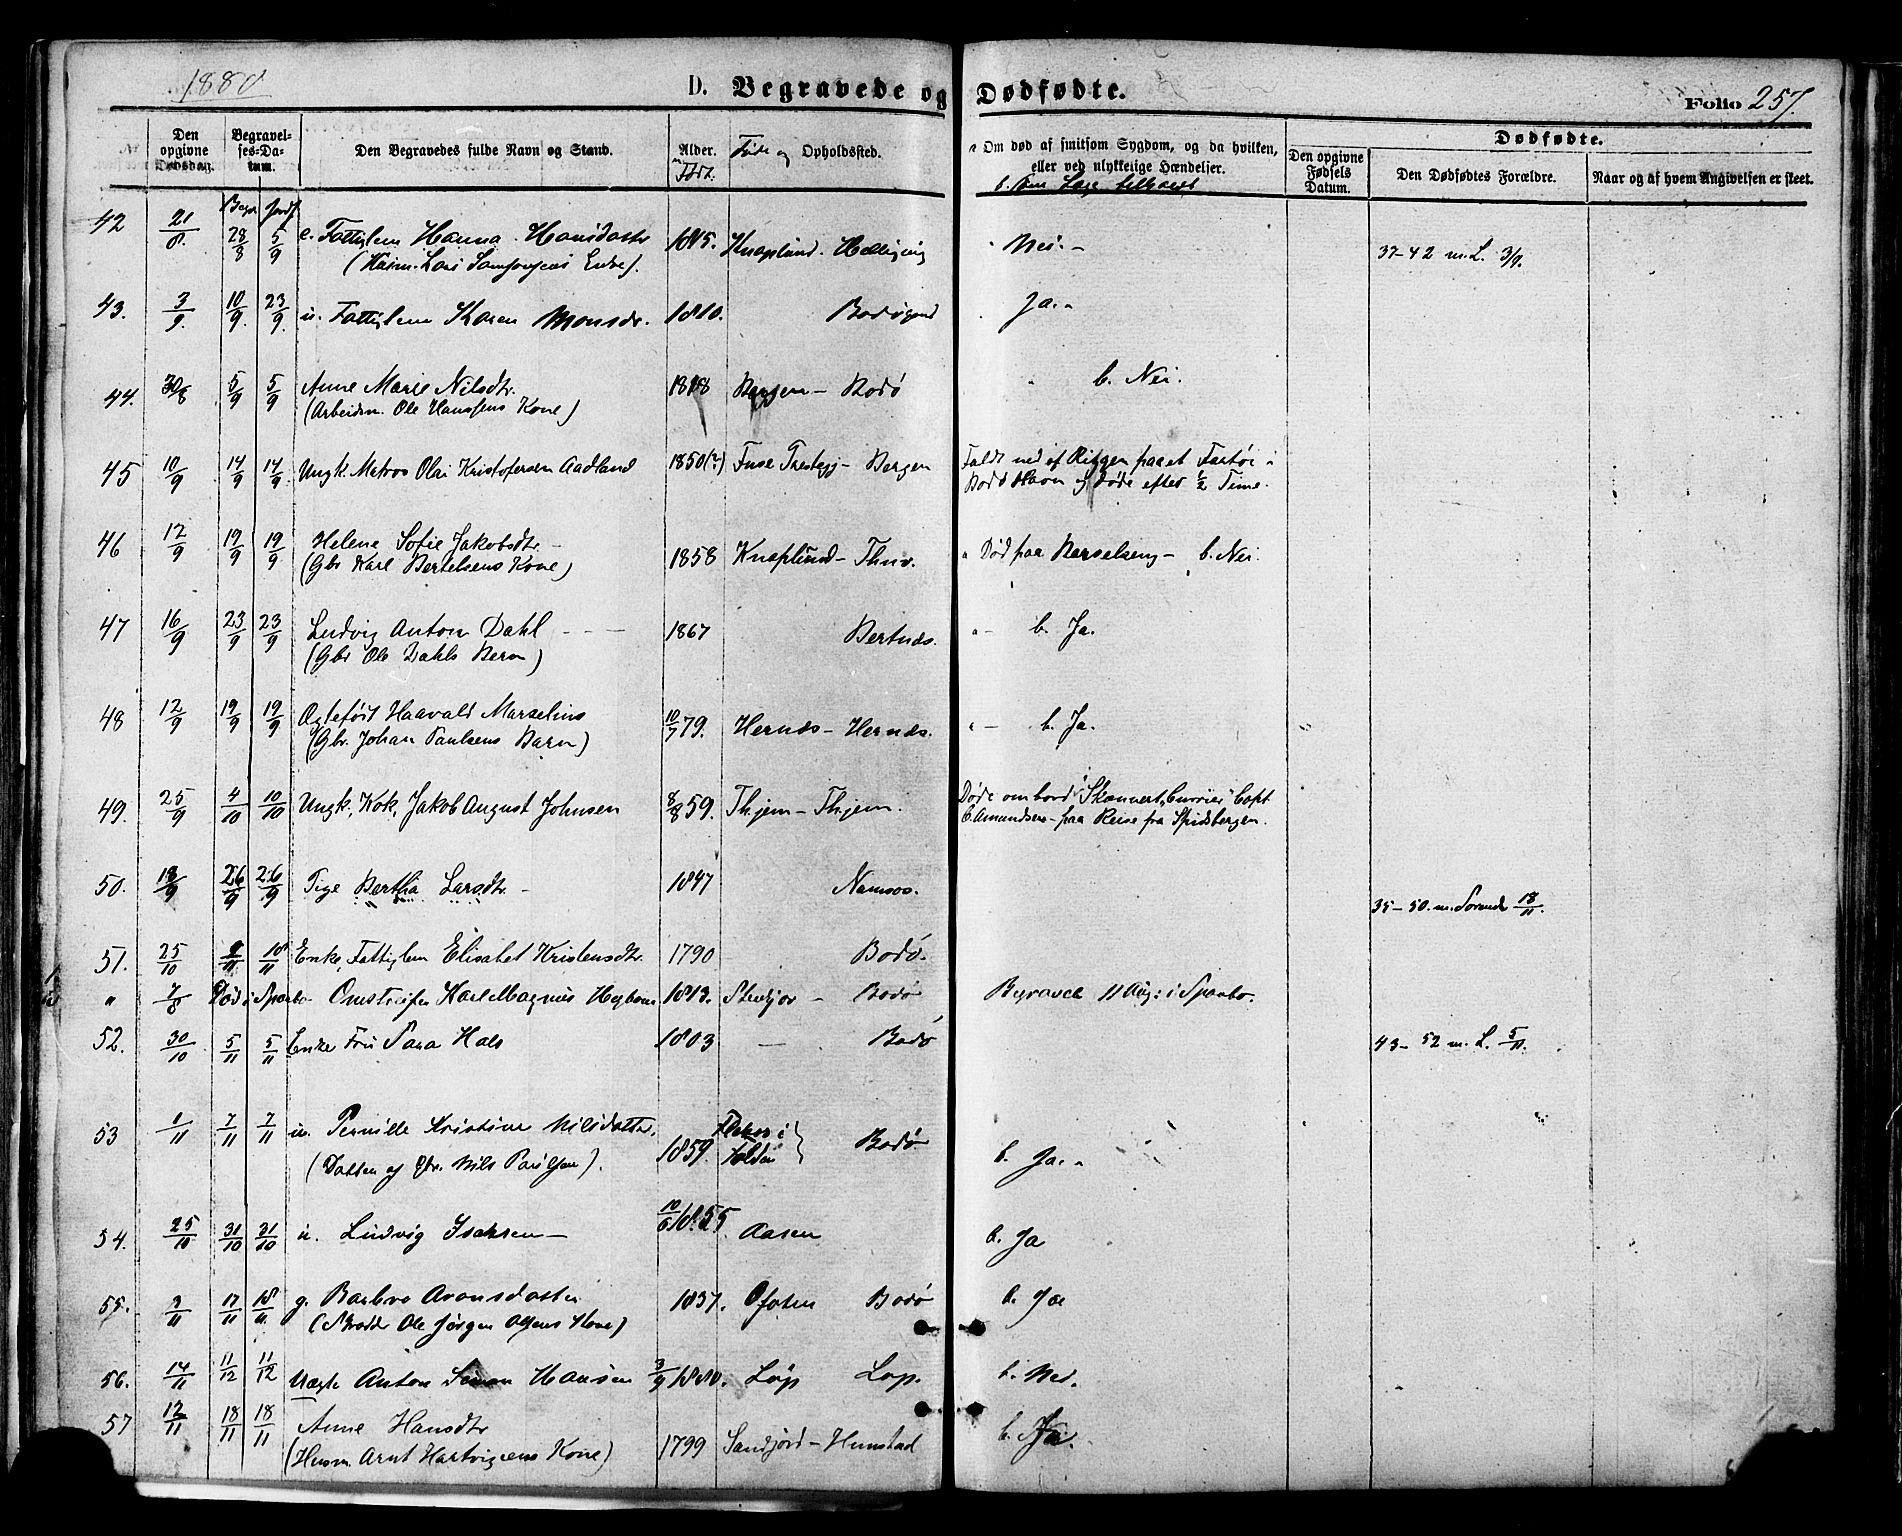 1880
D. Begravede og Dødfødte.
Folio 257.
Den opgivne Dødsdag.
Begravelses-Datum.
Den Begravedes fulde Navn og Stand.
Alder. Født.
Føde og Opholdssted.
Om død af smitsom Sygdom, og da hvilken, eller ved ulykkelige Hændelser.
b. Om Læge tilkaldt
Den opgivne Fødsels Datum.
Dødfødte.
Den Dødfødtes Forældre.
Naar og af hvem Angivelsen er skeet.
Begr. Jordf
42 21/8. 28/8 5/9 e. Fattiglem Hanna Hansdatter 1815. Knaplund. Nei. 37-42 m. L. 3/9.
43. 3/9. 10/9. 23/9. u. Fattiglem Karen Monsdr. 1810. Bodøgaard Ja.
44. 30/8 5/9 5/9 Anne Marie Nilsdtr. 1818 Bergen - Bodø b. Nei.
(Arbeidsm. Ole Hanssens Kone)
45 10/9 14/9 14/9 Ungk. Matros Olai Kristofersen Aadland 1850(?) Fuse Prestegj- Bergen Faldt ned af Riggen paa et Fartøi i
Bodø Havn og døde efter 1/2 Time.
46 12/9 19/9 19/9. Helene Sofie Jakobsdtr. - 1858 Knaplund- Thuv. Død paa Barselseng - b. Nei.
(Gbr Karl Bertelsens Kone)
47 16/9 23/9 23/9 Ludvig Anton Dahl - - 1867 Bertnes. b. Ja.
(Gbr Ole Dahls Barn)
48 12/9 19/9 19/9 Ægtefødt Haavald Marselius 10/7 79. Hernes - Hernes. b. Ja.
(Gbr. Johan Paulsens Barn)
49. 25/9 4/10 10/10 Ungk, Kok, Jakob August Johnsen 8/8 59. Thjem - Thjem. Døde ombord i Skonnert Capt
Amundsen - paa Reise fra Spidsbergen.
50. 18/9 26/9 26/9 Pige Bertha Larsdtr. - 1847 Namsos. 35-50. m. 18/11.
51. 25/10 9/11 10/11 Enke, Fattiglem Elisabet Kristensdtr. 1790 Bodø.
" 7/8 Død i Sparbo Omstreifer Karl Magnus 1813. - Bodø Begravet 11 Aug: i Sparbo.
52. 30/10 5/11 5/11 Enke Fru Sara Hals 1803 - Bodø 43-52 m. L. 5/11.
53 1/11 7/11 7/11 u. Pernille Kristine Nilsdatter. 1859. Bodø b. Ja.
(Datter af Gbr. Nils Paulsen).
54. 25/10 31/10 31/10 u. Ludvig Isaksen - 10/6 1855 Aasen b. Ja
55. 9/11 17/11 18/11. g. Barbro Aronsdatter 1837. Ofoten Bodø b. Ja
(Ole Jørgen Olsens Kone)
56. 14/11 11/12 11/12 Uægte Anton Simon Hansen 3/9 1880. Løp Løp. b. Nei.
57 12/11 18/11 18/11 Anne Hansdtr 1799 Sandjord - Hunstad b. Ja.
(Husm. Arnt Hartvigsens Kone)